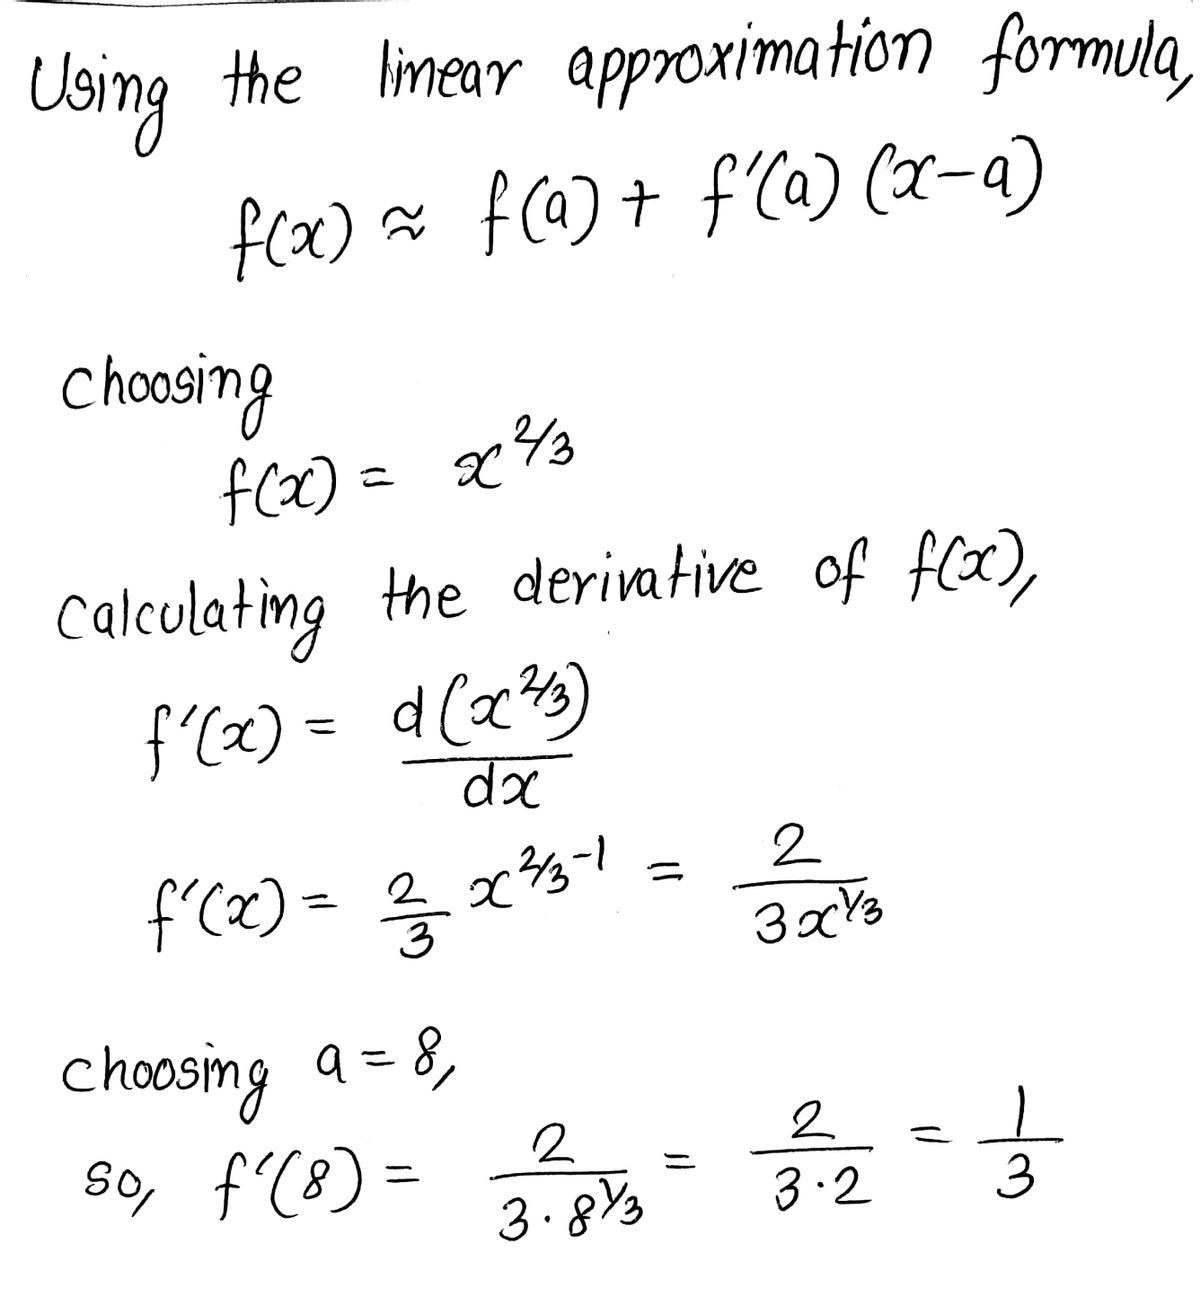 Using the linear approximation formula,
f(x) ≈ f(a) + f'(a) (x-a)
choosing
f(x) = x^2/3
calculating the derivative of f(x),
f'(x) = d(x^2/3) / dx
f'(x) = 2/3 x^2/3-1 = 2 / 3x^1/3
choosing a = 8,
so, f'(8) = 2 / 3·8^1/3 = 2 / 3·2 = 1/3